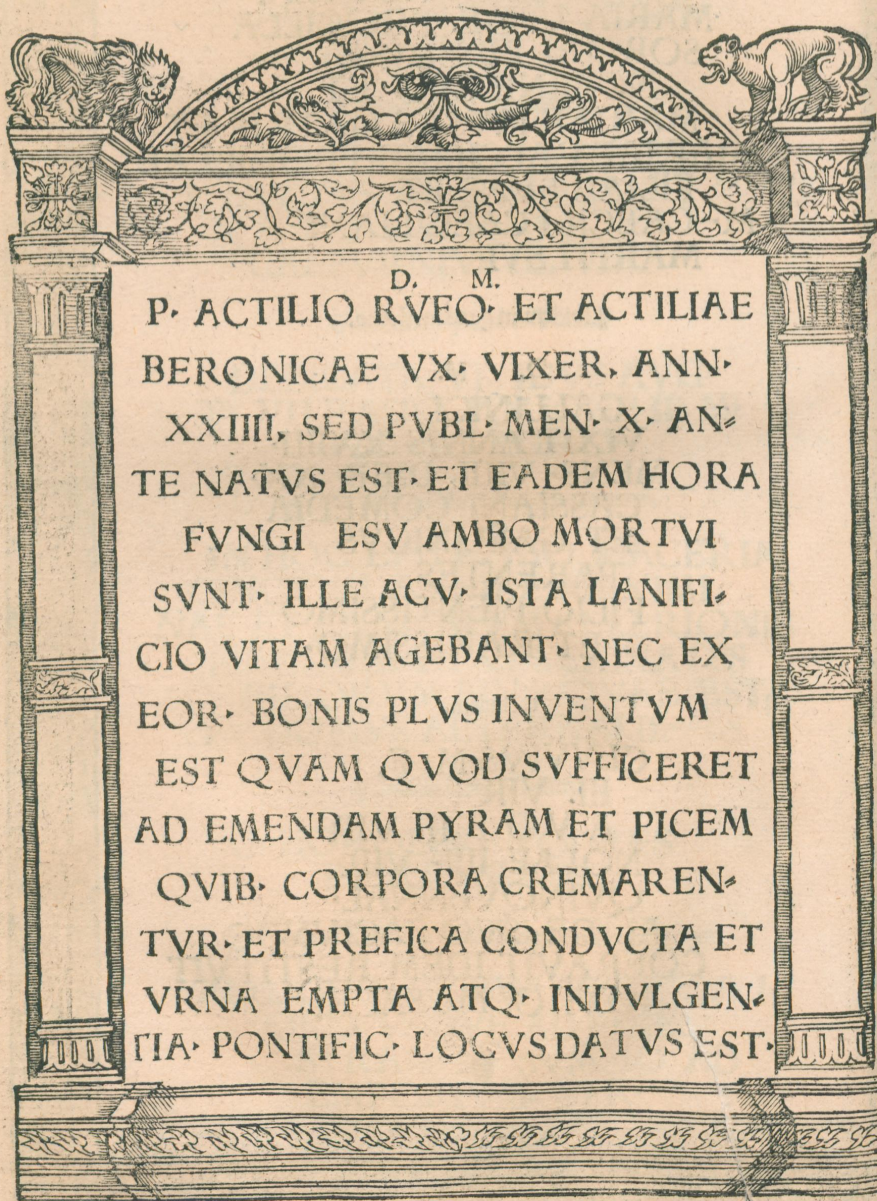 D. M.
P· ACTILIO RVFO· ET ACTILIAE
BERONICAE VX· VIXER, ANN·
XXIIII, SED PVBL· MEN· X· AN⸗
TE NATVS EST· ET EADEM HORA
FVNGI ESV AMBO MORTVI
SVNT· ILLE ACV· ISTA LANIFI⸗
CIO VITAM AGEBANT· NEC EX
EOR· BONIS PLVS INVENTVM
EST QVAM QVOD SVFFICERET
AD EMENDAM PYRAM ET PICEM
QVIB· CORPORA CREMAREN⸗
TVR· ET PREFICA CONDVCTA ET
VRNA EMPTA ATQ· INDVLGEN⸗
TIA· PONTIFIC· LOCVS DATVS EST·